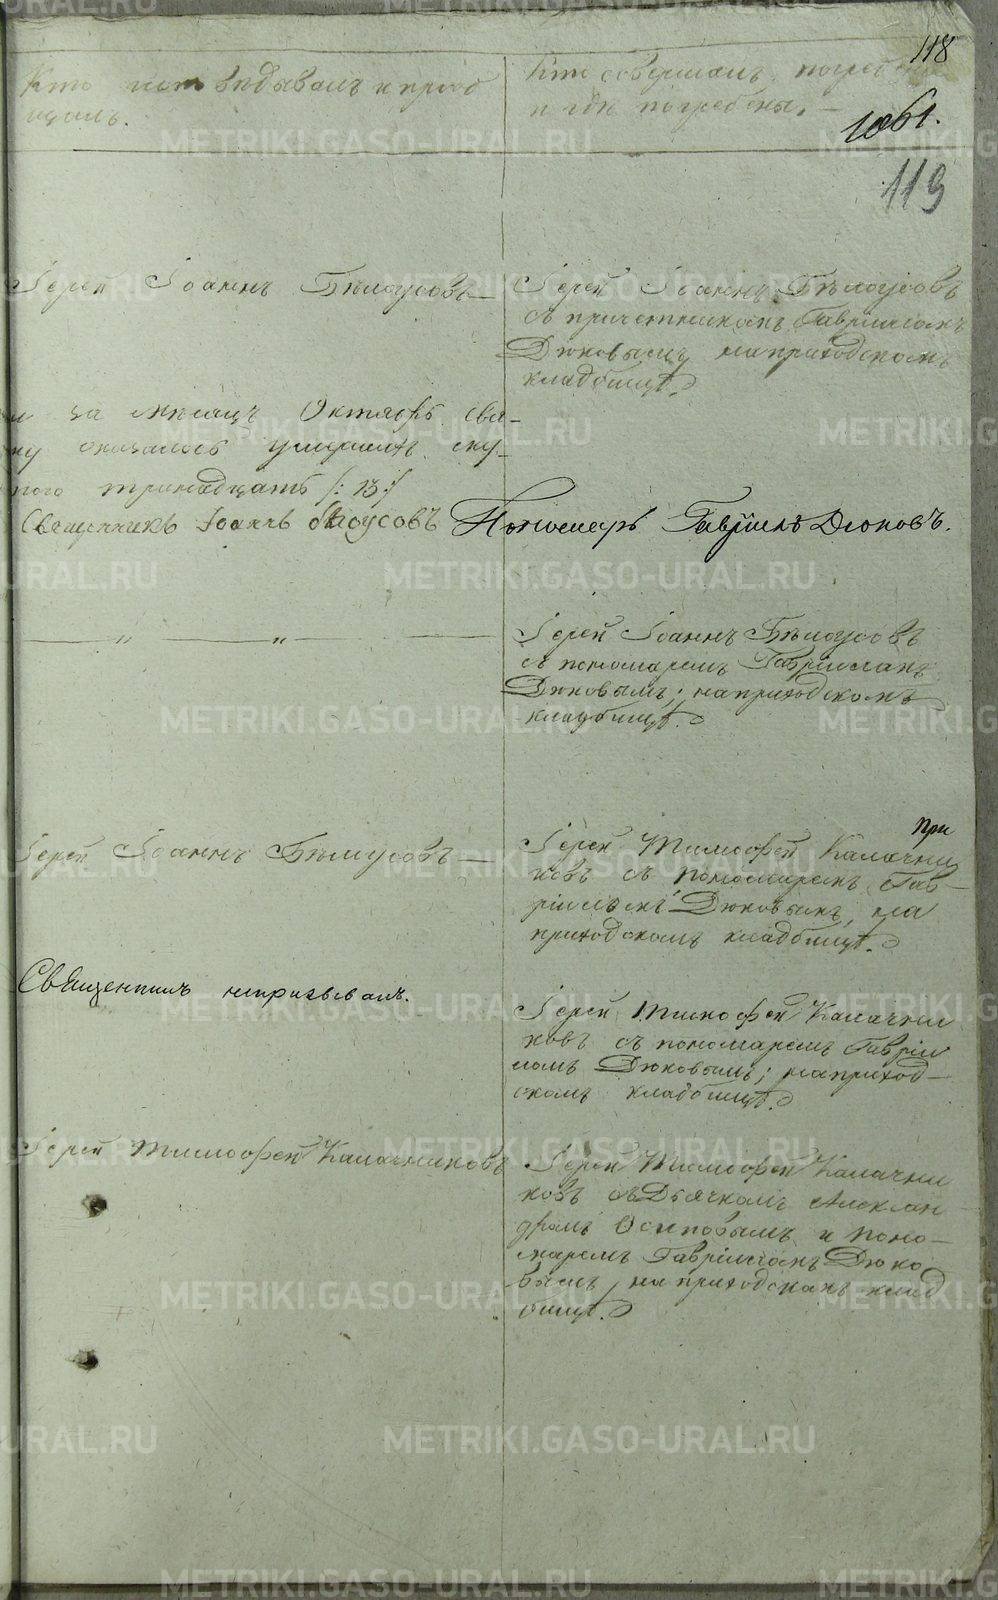 118
Кто исповѣдывалъ и приоб
щалъ.
Кто совершалъ погребение
и гдѣ погребены.
1061.
119
Іерей Іоаннъ Бѣлоусовъ
Іерей Іоаннъ Бѣлоусовъ
съ причетникомъ Гавріиломъ
Дюковымъ на приходскомъ
кладбищѣ.
за мѣсяцъ Октябрь свя-
ку оказалось умершихъ му-
ного тринадцать /: 13 :/
Священникъ Іоаннъ Бѣлоусовъ Пономарь Гавріилъ Дюковъ.
— „ — „ —
Іерей Іоаннъ Бѣлоусовъ
съ пономаремъ Гавріиломъ
Дюковымъ; на приходскомъ
кладбищѣ.
Іерей Іоаннъ Бѣлоусовъ —
При
Іерей Тимофей Калачни
ковъ съ пономаремъ Гав-
ріиломъ Дюковымъ, на
приходскомъ кладбищѣ.
Священникъ непризывалъ.
Іерей Тимофей Калачни
ковъ съ пономаремъ Гавріи
ломъ Дюковымъ; на приход-
скомъ кладбищѣ.
Іерей Тимофей Калачниковъ
Іерей Тимофей Калачни
ковъ съ Дьячкомъ Алексан
дромъ Осиповымъ и поно-
маремъ Гавріиломъ Дюко
вымъ, на приходскомъ клад
бищѣ.
METRIKI.GASO-URAL.RU